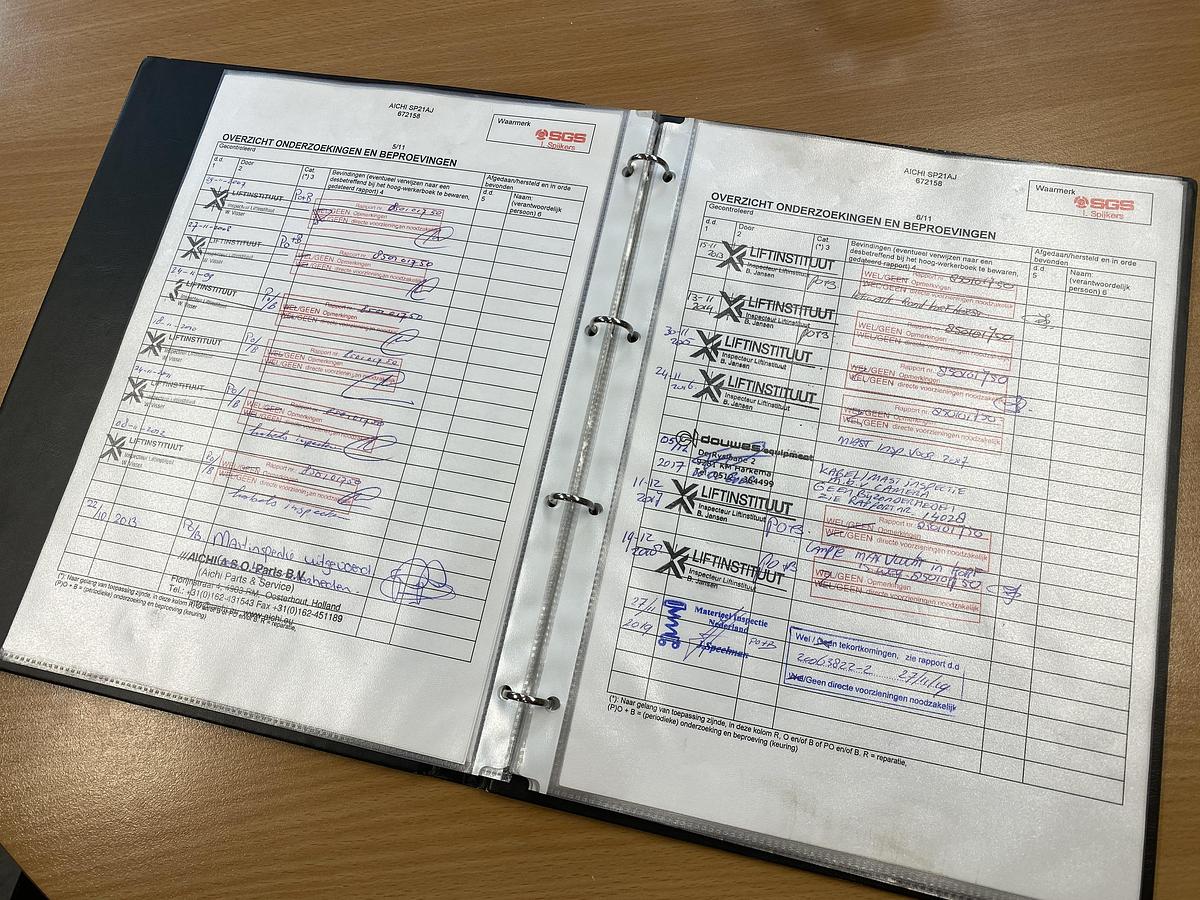 AICHI SP21AJ
672158
Waarmerk
SGS
I. Spijkers
5/11
OVERZICHT ONDERZOEKINGEN EN BEPROEVINGEN
Gecontroleerd
Afgedaan/hersteld en in orde
bevonden
d.d.
1
Door
2
Cat.
(*) 3
Bevindingen (eventueel verwijzen naar een
desbetreffend bij het hoog-werkerboek te bewaren,
gedateerd rapport) 4
d.d.
5
Naam:
(verantwoordelijk
persoon) 6
LIFTINSTITUUT
Inspecteur Liftinstituut
W. Visser
PO+B
Rapport nr.
WEL/GEEN Opmerkingen
WEL/GEEN directe voorzieningen noodzakelijk
27-11-2008
LIFTINSTITUUT
Inspecteur Liftinstituut
W. Visser
PO+B
Rapport nr. 850101750
WEL/GEEN Opmerkingen
WEL/GEEN directe voorzieningen noodzakelijk
24-11-09
LIFTINSTITUUT
Inspecteur Liftinstituut
W. Visser
PO/B
Rapport nr.
WEL/GEEN Opmerkingen
WEL/GEEN directe voorzieningen noodzakelijk
18-11-2010
LIFTINSTITUUT
Inspecteur Liftinstituut
W. Visser
PO/B
Rapport nr. 850101750
WEL/GEEN Opmerkingen
WEL/GEEN directe voorzieningen noodzakelijk
LIFTINSTITUUT
Inspecteur Liftinstituut
W. Visser
PO/B
Rapport nr.
WEL/GEEN Opmerkingen
WEL/GEEN directe voorzieningen noodzakelijk
LIFTINSTITUUT
Inspecteur Liftinstituut
W. Visser
PO/B
Rapport nr. 850101750
WEL/GEEN Opmerkingen
WEL/GEEN directe voorzieningen noodzakelijk
22/10 2013
PO/B
Mastinspectie uitgevoerd
///AICHI A.S.O. Parts B.V.
(Aichi Parts & Service)
Florijnstraat 4, 4903 RM Oosterhout, Holland
Tel.: +31(0)162-431543 Fax +31(0)162-451189
www.aichi.eu
(*): Naar gelang van toepassing zijnde, in deze kolom R, O en/of B of PO en/of B, R = reparatie,
(P)O + B = (periodieke) onderzoeking en beproeving (keuring)
AICHI SP21AJ
672158
Waarmerk
SGS
I. Spijkers
6/11
OVERZICHT ONDERZOEKINGEN EN BEPROEVINGEN
Gecontroleerd
Afgedaan/hersteld en in orde
bevonden
d.d.
1
Door
2
Cat.
(*) 3
Bevindingen (eventueel verwijzen naar een
desbetreffend bij het hoog-werkerboek te bewaren,
gedateerd rapport) 4
d.d.
5
Naam:
(verantwoordelijk
persoon) 6
15-11
2013
LIFTINSTITUUT
Inspecteur Liftinstituut
B. Jansen
PO+B
Rapport nr. 850101750
WEL/GEEN Opmerkingen
WEL/GEEN directe voorzieningen noodzakelijk
13-11
2014
LIFTINSTITUUT
Inspecteur Liftinstituut
B. Jansen
PO+B
Rapport nr. 850101750
WEL/GEEN Opmerkingen
WEL/GEEN directe voorzieningen noodzakelijk
30-11
2015
LIFTINSTITUUT
Inspecteur Liftinstituut
B. Jansen
Rapport nr. 850101750
WEL/GEEN Opmerkingen
WEL/GEEN directe voorzieningen noodzakelijk
24-11
2016
LIFTINSTITUUT
Inspecteur Liftinstituut
B. Jansen
Rapport nr. 850101750
WEL/GEEN Opmerkingen
WEL/GEEN directe voorzieningen noodzakelijk
MAST INSP VOOR 2017
05/12
2017
douwes equipment
KM Harkema
KABEL/MAST INSPECTIE
M.B.V. CAMERA
GEEN BIJZONDERHEDEN
ZIE RAPPORT NR. 14028
11-12
2017
LIFTINSTITUUT
Inspecteur Liftinstituut
B. Jansen
PO+B
Rapport nr. 850101750
WEL/GEEN Opmerkingen
WEL/GEEN directe voorzieningen noodzakelijk
19-12
2018
LIFTINSTITUUT
Inspecteur Liftinstituut
B. Jansen
PO+B
850101750
WEL/GEEN Opmerkingen
WEL/GEEN directe voorzieningen noodzakelijk
27/11
2019
Materieel Inspectie
Nederland
J. Speelman
PO+B
Wel / Geen tekortkomingen, zie rapport d.d
27/11/19
Wel/Geen directe voorzieningen noodzakelijk
(*): Naar gelang van toepassing zijnde, in deze kolom R, O en/of B of PO en/of B, R = reparatie,
(P)O + B = (periodieke) onderzoeking en beproeving (keuring)